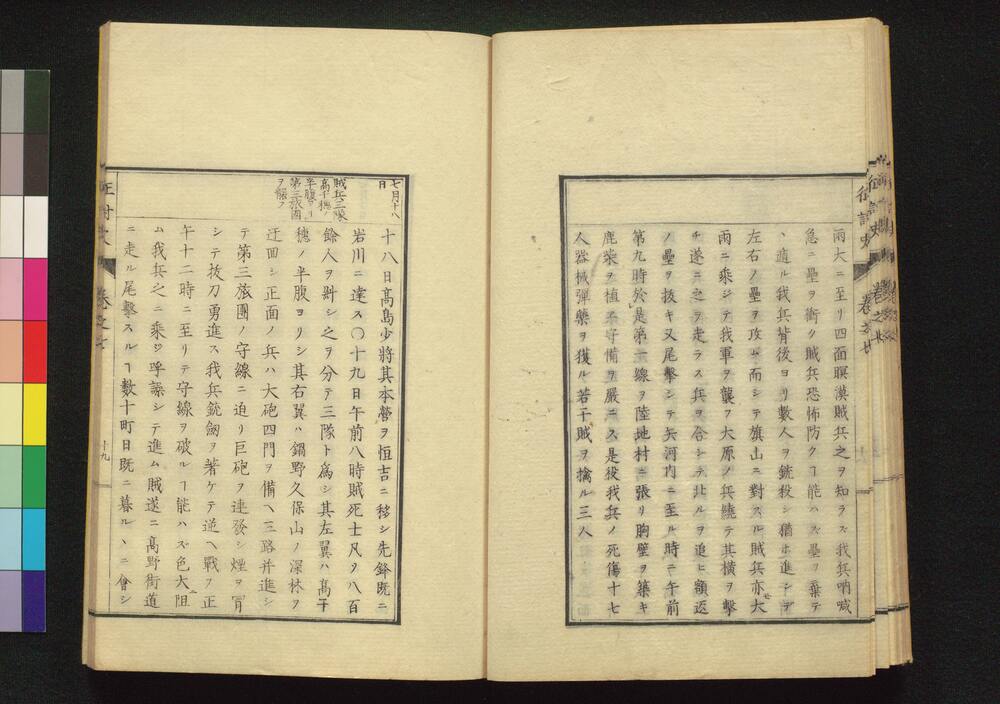 雨大ニ至リ四面瞑漠賊兵之ヲ知ラス我兵吶喊
急ニ壘ヲ衝ク賊兵恐怖防クヿ能ハス壘ヲ棄テ
ヽ遁ル我兵背後ヨリ數人ヲ銃殺シ猶ホ進シデ
左右ノ壘ヲ攻ム而シテ旗山ニ對スル賊兵亦大
雨ニ乘ジテ我軍ヲ襲フ大原ノ兵繞テ其橫ヲ擊
チ遂ニ之ヲ走ラス兵ヲ合シテ北ルヲ追ヒ額返
ノ壘ヲ拔キ又尾擊シテ矢河内ニ至ル時ニ午前
第九時於是第一線ヲ陸地村ニ張リ胸壁ヲ築キ
鹿柴ヲ植ヱ守備ヲ嚴ニス是役我兵ノ死傷十七
人器械彈藥ヲ獲ル若干賊ヲ擒ル三人
七月十八
日
十八日髙島少將其本營ヲ恒吉ニ移シ先鋒既ニ
岩川ニ達ス〇十九日午前八時賊死士凡ソ八百
賊兵三隊
髙千穗ノ
半腹ヨリ
第三旅團
ヲ襲フ
餘人ヲ㪺シ之ヲ分テ三隊ト爲シ其左翼ハ髙千
穗ノ半腹ヨリシ其右翼ハ鍋野久保山ノ深林ヲ
迂回シ正面ノ兵ハ大砲四門ヲ備ヘ三路并進シ
テ第三旅團ノ守線ニ迫リ巨砲ヲ連發シ煙ヲ冐
シテ抜刀勇進ス我兵銃劔ヲ著ケテ逆ヘ戰フ正
午十二時ニ至リテ守線ヲ破ルヿ能ハズ色大ニ阻
ム我兵之ニ乘ジ呼譟シテ進ム賊遂ニ髙野街道
ニ走ル尾擊スルヿ數十町日既ニ暮ルヽニ會シ
卷之七
十九